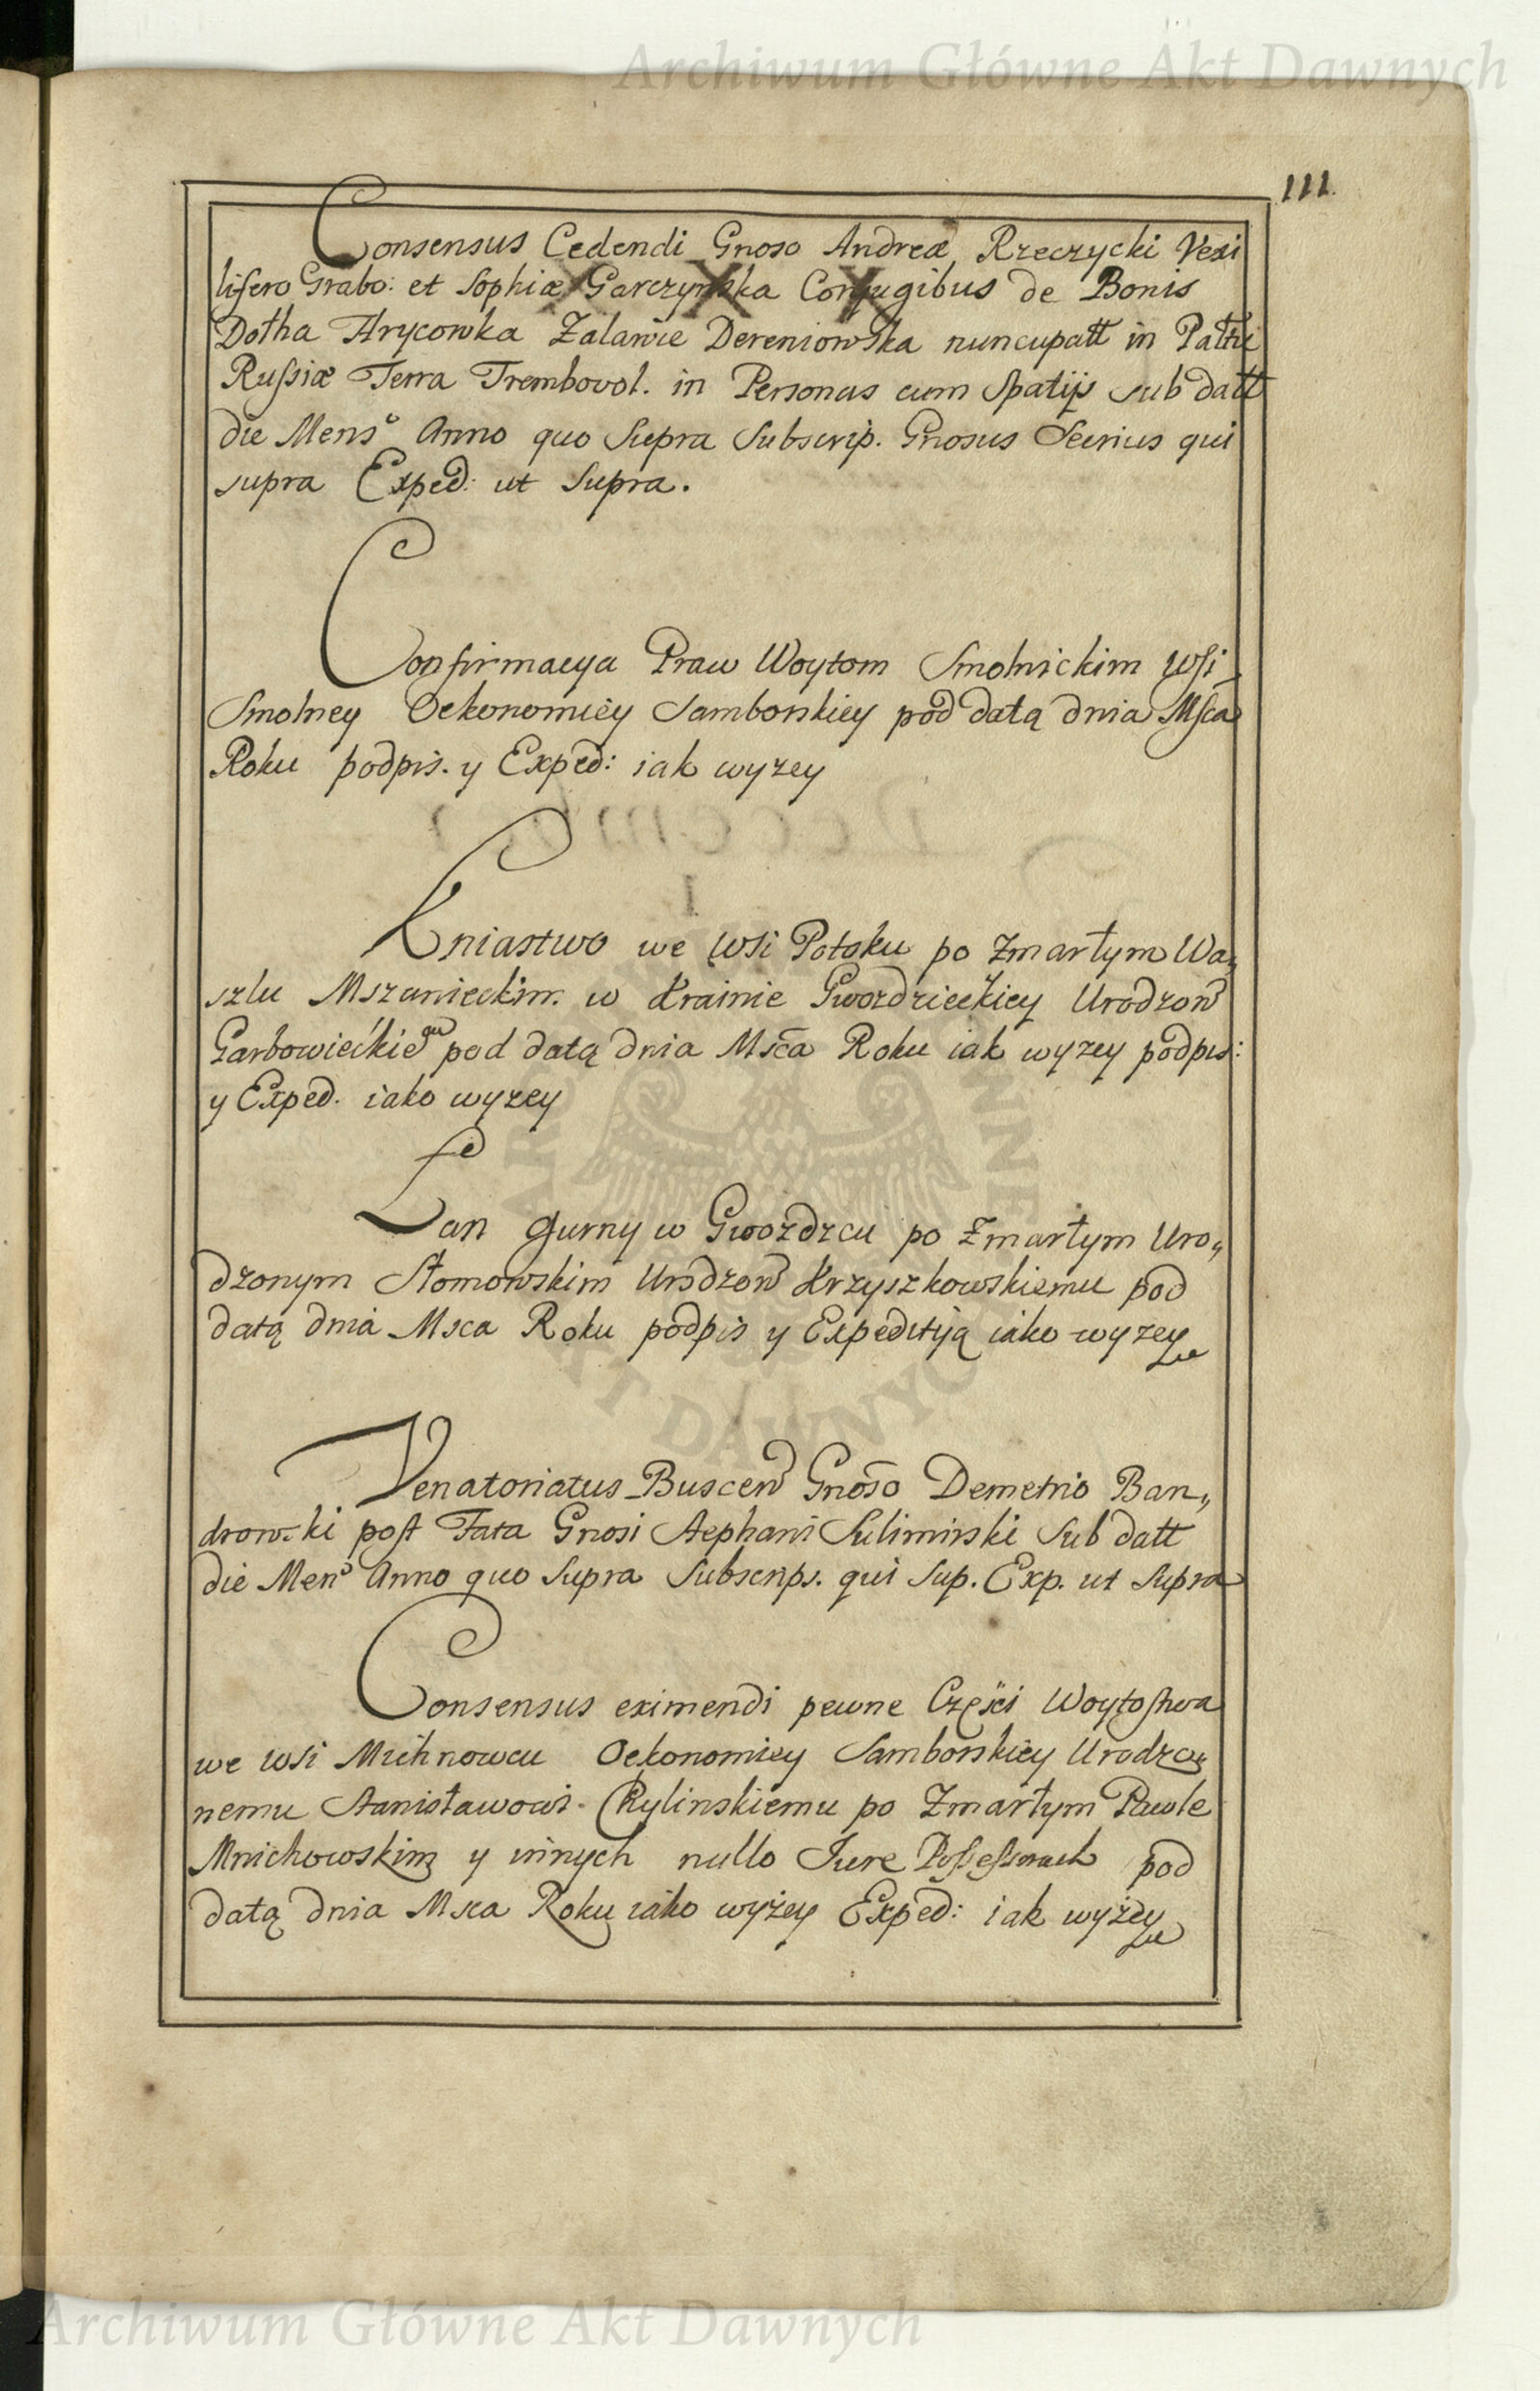 Archiwum Główne Akt Dawnych
111.
Consensus Cedendi Gnoso Andreæ Rzeczycki Vexi
lifero Grabo: et Sophiæ Garczynska Conjugibus de Bonis
Dołha Hrycowka Zalawie Dereniowska nuncupatt in Palttu
Russiæ Terra Trembovol. in Personas cum Spatijs sub datt
die Mens° Anno quo Supra Subscrip. Gnosus Secrius qui
supra Exped: ut Supra.
Confirmacya Praw Woytom Smolnickim Wsi
Smolney Oekonomiey Samborskiey pod datą dnia Msca
Roku podpis. y Exped: iak wyzey
Kniastwo we Wsi Potoku po Zmarłym Wa„
szlu Mszanieckim. w Krainie Gwozdzieckiey Urodzon
Garbowieckiemu pod datą dnia Msca Roku iak wyzey podpis:
y Exped. iako wyzey
Łan gurny w Gwozdzcu po Zmarłym Uro„
dzonym Słomowskim Urodzon Krzyszkowskiemu pod
datą dnia Msca Roku podpis y Expedityą iako wyzey
Venatoriatus Buscen Gnoso Demetrio Ban„
drowski post Fata Gnosi Stephani Sulimirski Sub datt
die Mens Anno quo Supra Subscrips. qui Sup. Exp. ut Supra
Consensus eximendi pewne Części Woytostwa
we Wsi Michnowcu Oekonomiey Samborskiey Urodzo„
nemu Stanisławowi Rylinskiemu po Zmarłym Pawle
Mnichowskim y innych nullo Jure Possessorach pod
datą dnia Msca Roku iako wyżey Exped: iak wyżey
Archiwum Główne Akt Dawnych